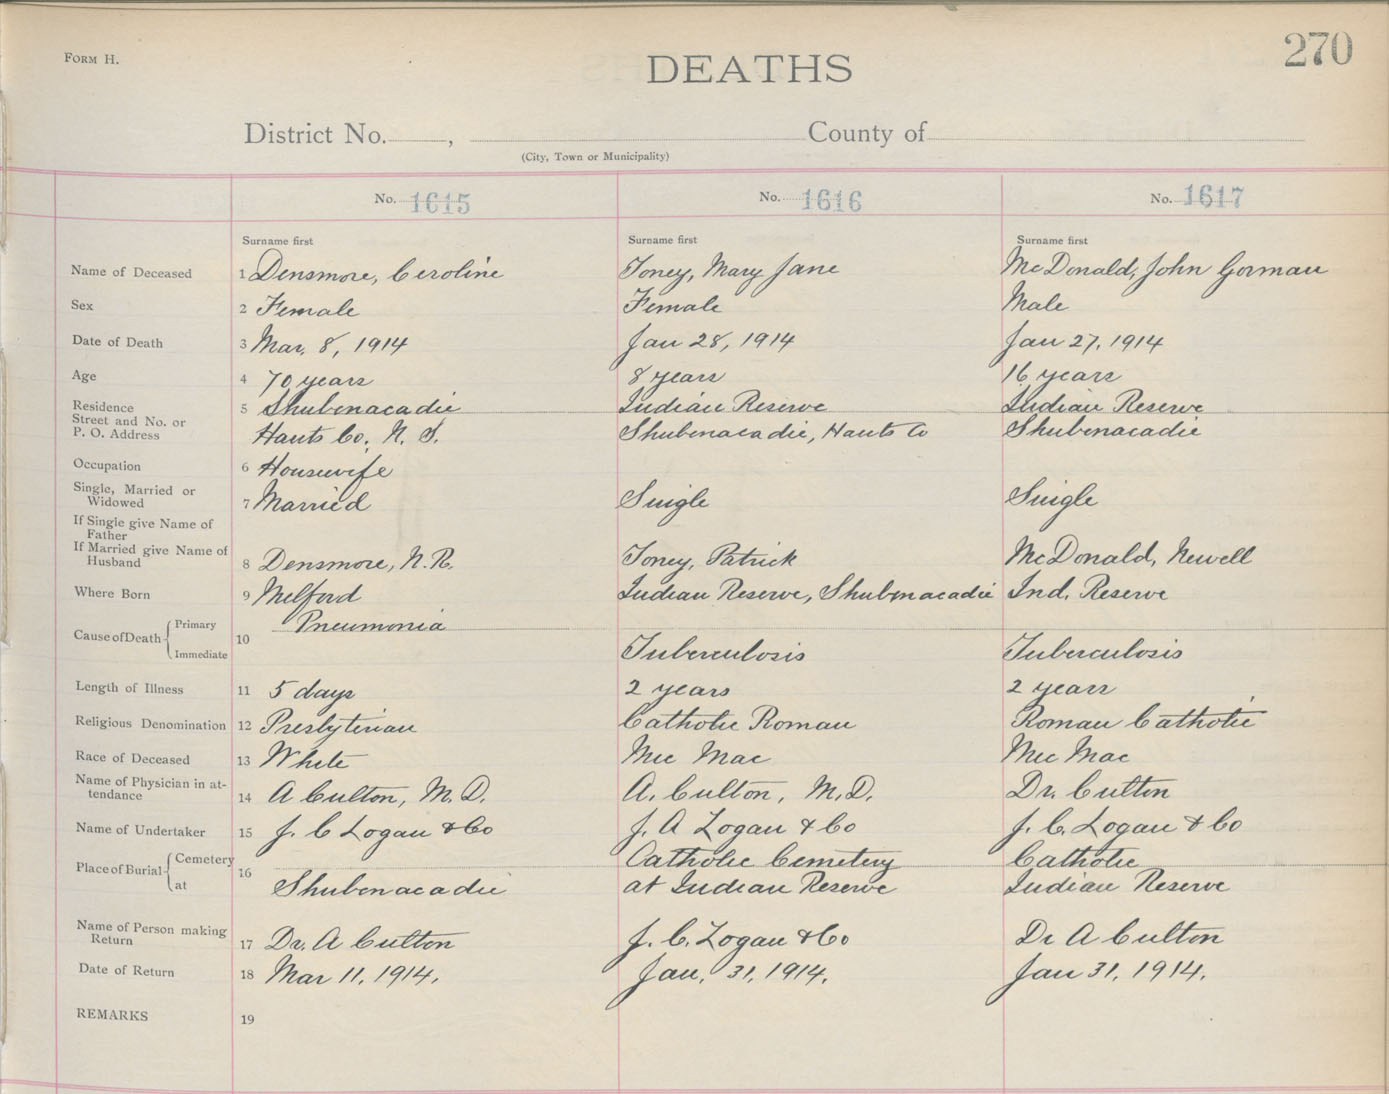 FORM H.
270
DEATHS
District No. , County of
(City, Town or Municipality)
No. 1615 No. 1616 No. 1617
Surname first Surname first Surname first
Name of Deceased 1 Densmore, Ceroline Toney, Mary Jane McDonald, John Gorman
Sex 2 Female Female Male
Date of Death 3 Mar. 8, 1914 Jan 28, 1914 Jan 27, 1914
Age 4 70 years 8 years 16 years
Residence 5 Shubenacadie Indian Reserve Indian Reserve
Street and No. or
P. O. Address Hants Co, N. S. Shubenacadie, Hants Co Shubenacadie
Occupation 6 Housewife
Single, Married or
Widowed 7 Married Single Single
If Single give Name of
Father
If Married give Name of
Husband 8 Densmore, N. R. Toney, Patrick McDonald, Newell
Where Born 9 Melford Indian Reserve, Shubenacadie Ind. Reserve
Primary Pneumonia
Cause of Death 10
Immediate Tuberculosis Tuberculosis
Length of Illness 11 5 days 2 years 2 years
Religious Denomination 12 Presbyterian Catholic Roman Roman Catholic
Race of Deceased 13 White Mic Mac Mic Mac
Name of Physician in at-
tendance 14 A Culton, M. D. A. Culton, M. D. Dr. Culton
Name of Undertaker 15 J. C Logan & Co J. A Logan & Co J. C. Logan & Co
Cemetery Catholic Cemetery Catholic
Place of Burial 16
at Shubenacadie at Indian Reserve Indian Reserve
Name of Person making
Return 17 Dr. A Culton J. C. Logan & Co Dr A Culton
Date of Return 18 Mar 11, 1914. Jan. 31, 1914. Jan 31, 1914.
REMARKS 19